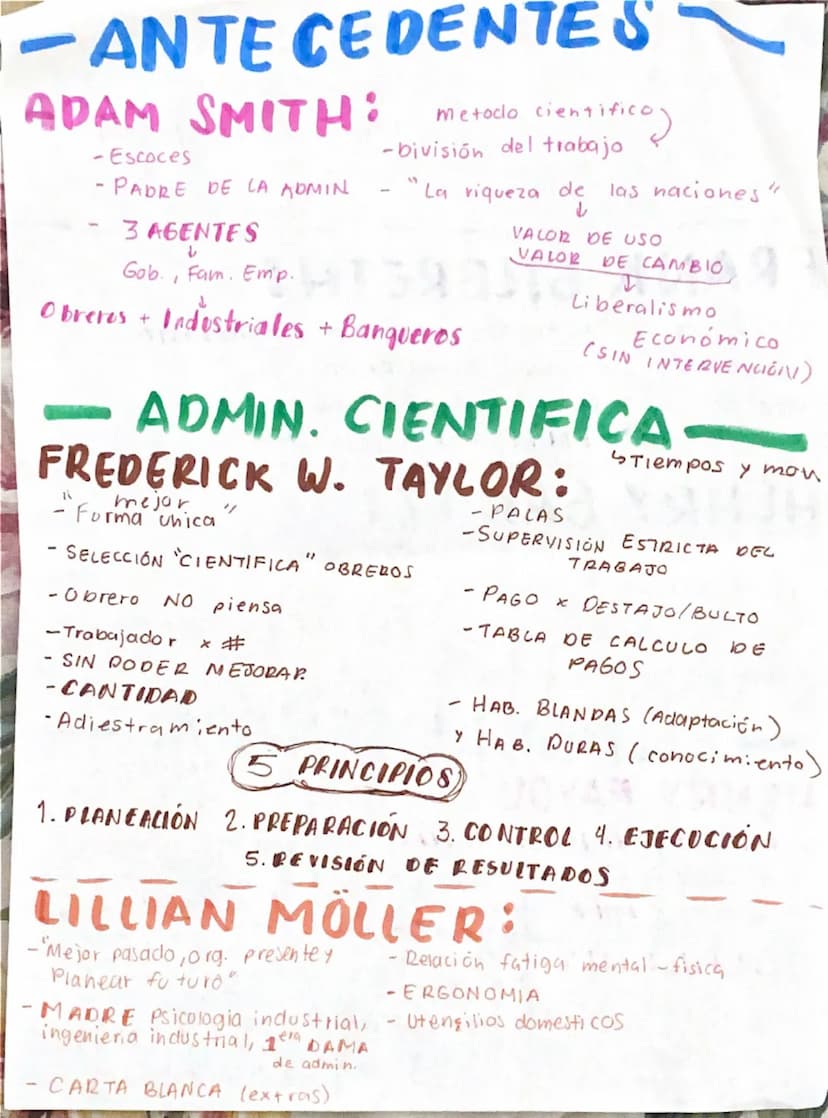 ANTECEDENTES
ADAM SMITH:
- Escoces
- PADRE DE LA ADMIN
- 3 AGENTES
Gob., Fam. Emp.
Obreros + Industriales + Banqueros
metodo cientifico
- División del trabajo
- "La riqueza de las naciones"
VALOR DE USO
VALOR DE CAMBIO
Liberalismo
Económico
(SIN INTERVENCIÓN)
ADMIN. CIENTIFICA
↳ Tiempos y mov
FREDERICK W. TAYLOR:
mejor
- "Forma unica"
- SELECCIÓN "CIENTIFICA" OBREROS
- Obrero NO piensa
- Trabajador x #
- SIN PODER MEJORAR
- CANTIDAD
- Adiestramiento
- PALAS
- SUPERVISIÓN ESTRICTA DEL
TRABAJO
- PAGO x DESTAJO/BULTO
- TABLA DE CALCULO DE
PAGOS
- HAB. BLANDAS (Adaptación)
y HAB. DURAS (conocimiento)
5 PRINCIPIOS
1. PLANEACIÓN 2. PREPARACIÓN 3. CONTROL 4. EJECUCIÓN
5. REVISIÓN DE RESULTADOS
LILLIAN MÖLLER:
- "Mejor pasado, org. presente y
Planear futuro"
- MADRE Psicologia industrial,
ingenieria industrial, 1era DAMA
de admin.
- CARTA BLANCA (extras)
- Relación fatiga mental - fisica
- ERGONOMIA
- Utensilios domesticos